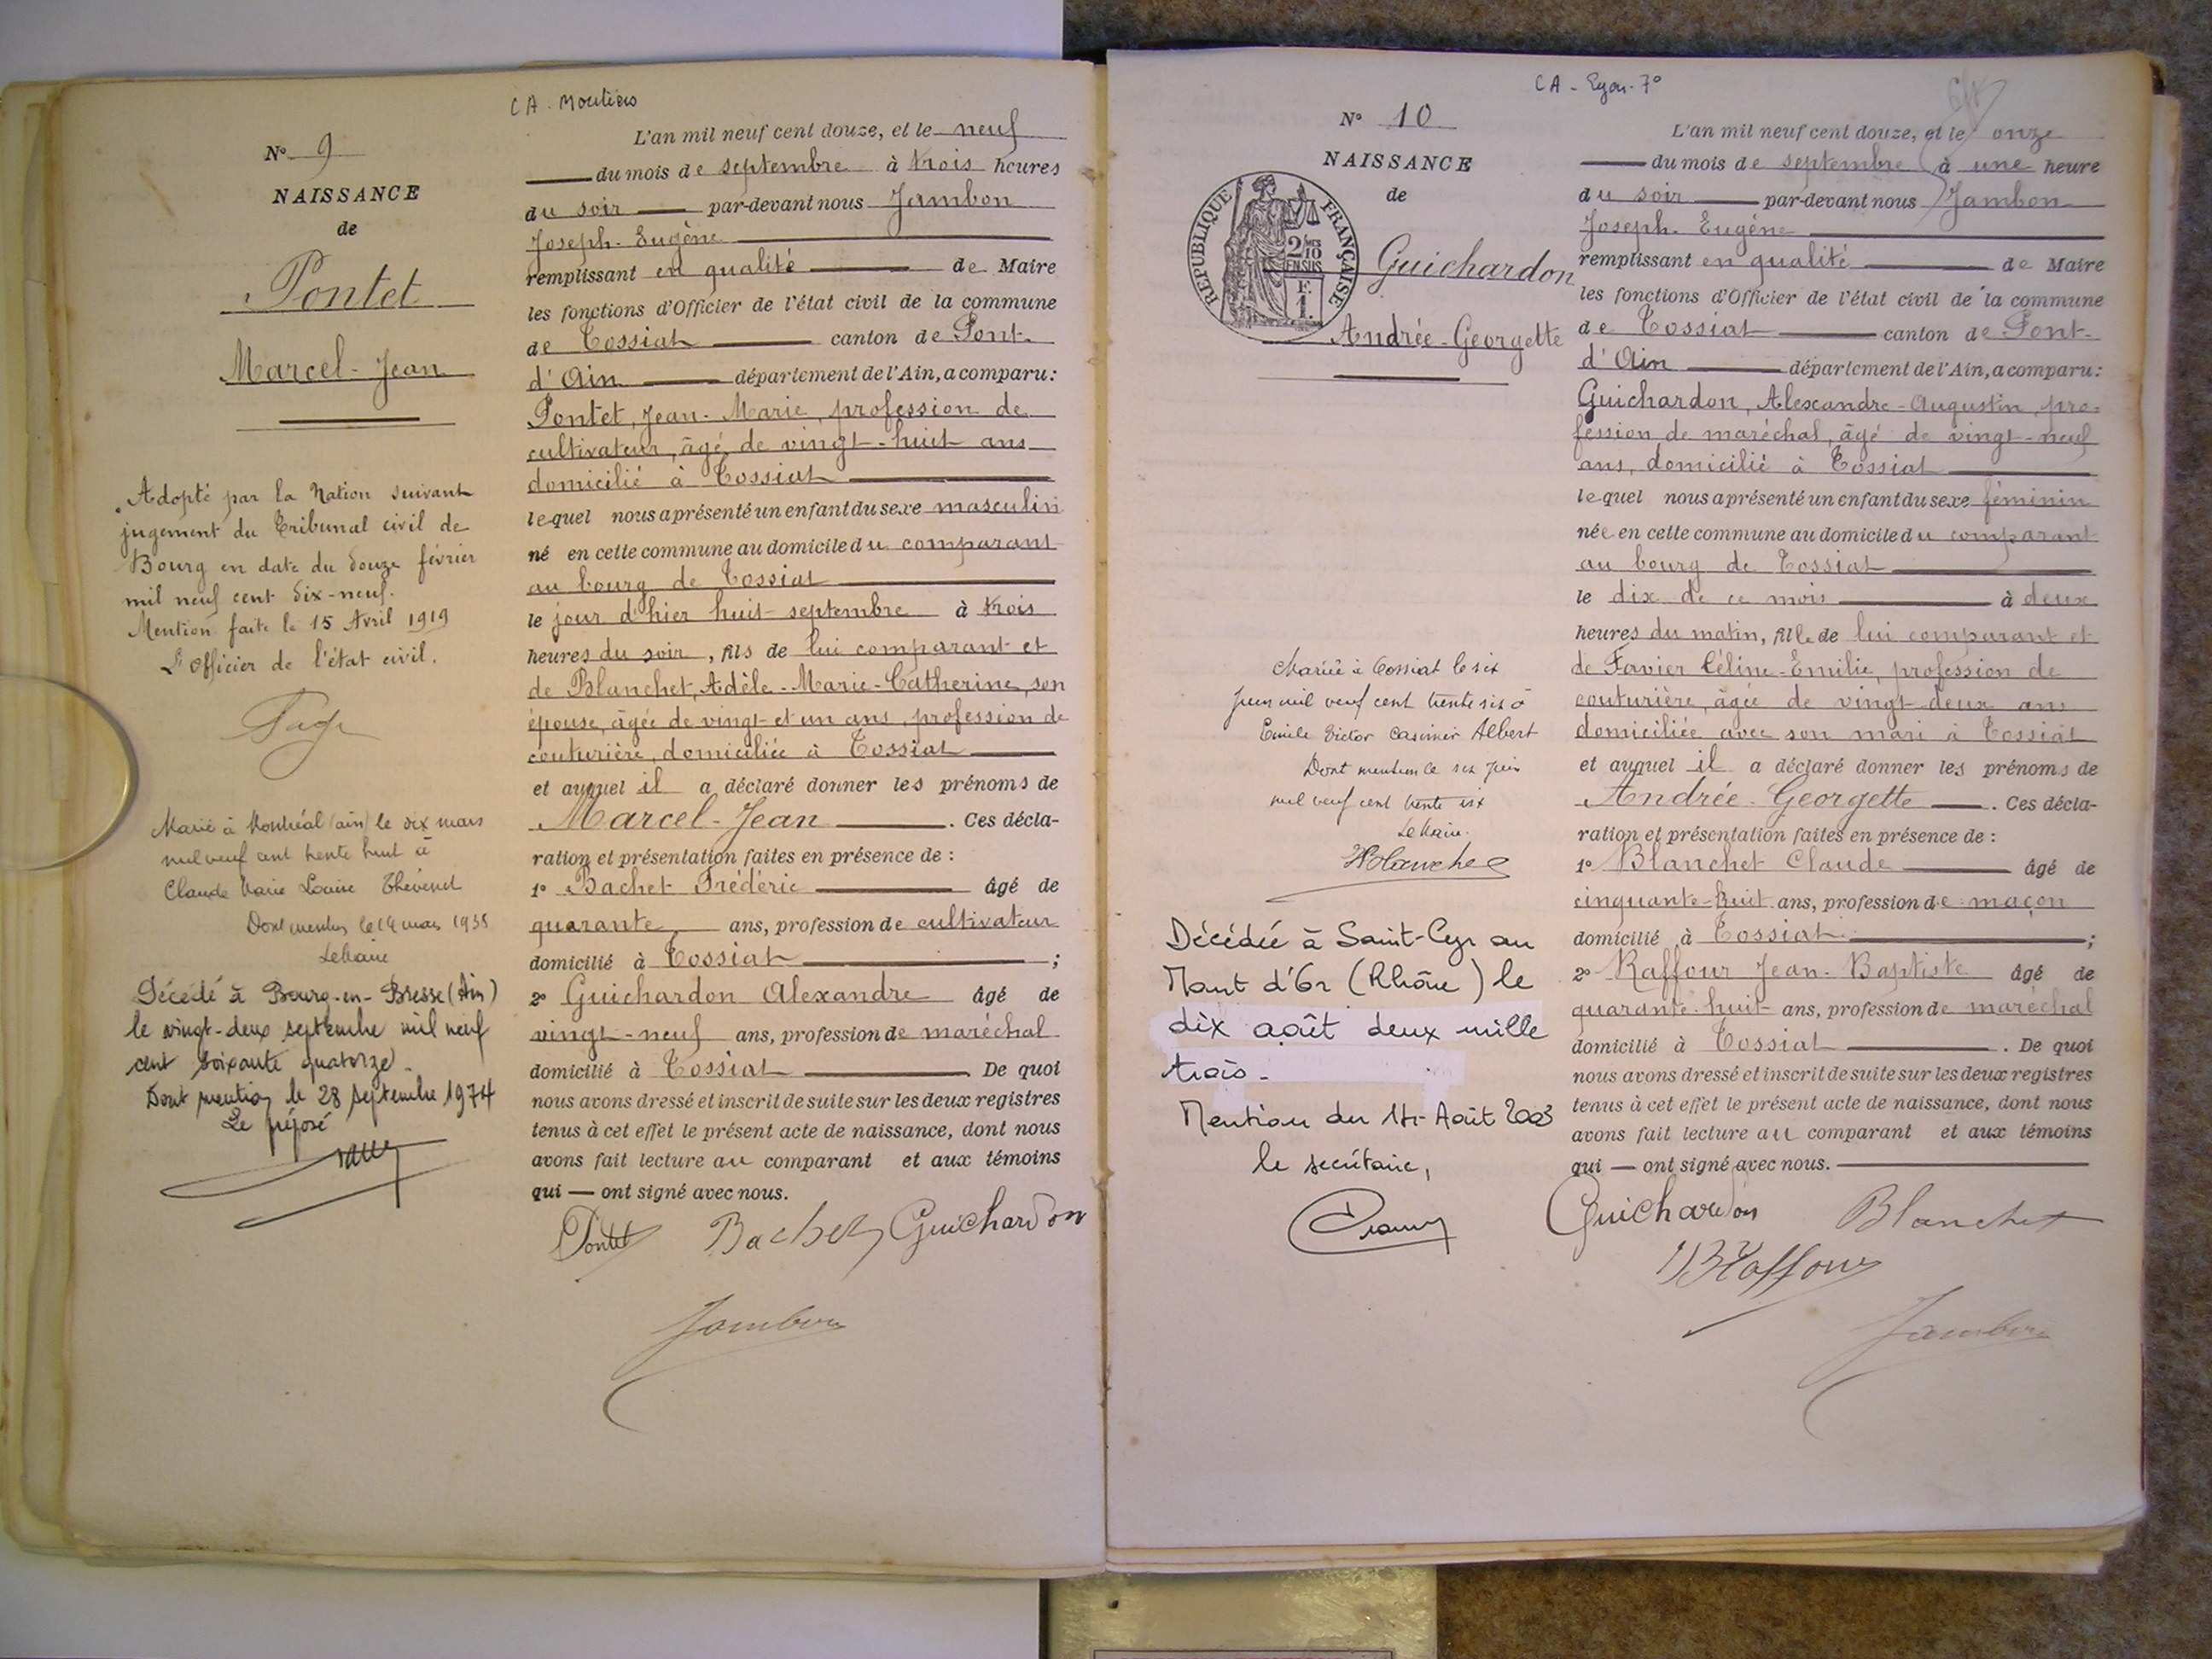 CA. Moutiers
N° 9
NAISSANCE
de
Pontet
Marcel-Jean
Adopté par la Nation suivant
jugement du Tribunal civil de
Bourg en date du douze février
mil neuf cent dix-neuf.
Mention faite le 15 Avril 1919
L'officier de l'état civil.
Marié à Montréal (ain) le dix mars
mil neuf cent trente huit à
Claude Marie Louise Thévenet
Dont mention le 14 mars 1938
Le Maire
Décédé à Bourg-en-Bresse (Ain)
le vingt-deux septembre mil neuf
cent soixante quatorze.
Dont mention le 28 septembre 1974
Le préposé
L'an mil neuf cent douze, et le neuf
du mois de septembre à trois heures
du soir par-devant nous Jambon
Joseph-Eugène
remplissant en qualité de Maire
les fonctions d'Officier de l'état civil de la commune
de Tossiat canton de Pont-
d'Ain département de l'Ain, a comparu:
Pontet, Jean-Marie, profession de
cultivateur, âgé de vingt-huit ans
domicilié à Tossiat
lequel nous a présenté un enfant du sexe masculin
né en cette commune au domicile du comparant
au bourg de Tossiat
le jour d'hier huit septembre à trois
heures du soir, fils de lui comparant et
de Blanchet, Adèle-Marie-Catherine, son
épouse, âgée de vingt-et un ans, profession de
couturière, domiciliée à Tossiat
et auquel il a déclaré donner les prénoms de
Marcel-Jean. Ces décla-
ration et présentation faites en présence de :
1° Bachet Frédéric âgé de
quarante ans, profession de cultivateur
domicilié à Tossiat ;
2° Guichardon Alexandre âgé de
vingt-neuf ans, profession de maréchal
domicilié à Tossiat De quoi
nous avons dressé et inscrit de suite sur les deux registres
tenus à cet effet le présent acte de naissance, dont nous
avons fait lecture au comparant et aux témoins
qui — ont signé avec nous.
Pontet Bachet Guichardon
Jambon
CA - Lyon-7°
N° 10
NAISSANCE
de
RÉPUBLIQUE FRANÇAISE
2/10
EN SUS
F.
1.
Guichardon
Andrée-Georgette
Mariée à Tossiat le six
juin mil neuf cent trente six à
Emile Victor Casimir Albert
Dont mention le six juin
mil neuf cent trente six
Le Maire.
Blanchet
Décédée à Saint-Cyr au
Mont d'Or (Rhône) le
dix août deux mille
trois.
Mention du 14 Août 2003
le secrétaire,
L'an mil neuf cent douze, et le onze
du mois de septembre à une heure
du soir par-devant nous Jambon
Joseph-Eugène
remplissant en qualité de Maire
les fonctions d'Officier de l'état civil de la commune
de Tossiat canton de Pont-
d'Ain département de l'Ain, a comparu:
Guichardon, Alexandre-Augustin, pro-
fession de maréchal, âgé de vingt-neuf
ans, domicilié à Tossiat
lequel nous a présenté un enfant du sexe féminin
née en cette commune au domicile du comparant
au bourg de Tossiat
le dix de ce mois à deux
heures du matin, fille de lui comparant et
de Favier Céline-Emilie, profession de
couturière, âgée de vingt-deux ans
domiciliée avec son mari à Tossiat
et auquel il a déclaré donner les prénoms de
Andrée-Georgette. Ces décla-
ration et présentation faites en présence de :
1° Blanchet Claude âgé de
cinquante-huit ans, profession de maçon
domicilié à Tossiat ;
2° Raffour Jean-Baptiste âgé de
quarante-huit ans, profession de maréchal
domicilié à Tossiat. De quoi
nous avons dressé et inscrit de suite sur les deux registres
tenus à cet effet le présent acte de naissance, dont nous
avons fait lecture au comparant et aux témoins
qui — ont signé avec nous.
Guichardon Blanchet
JB Raffour
Jambon